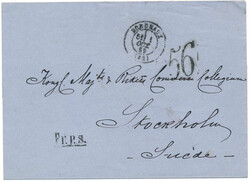 BORDEAUX
56
Kongl Majts & Rikets Commerce Collegium
Stockholm
Suède
P.F.P.S.